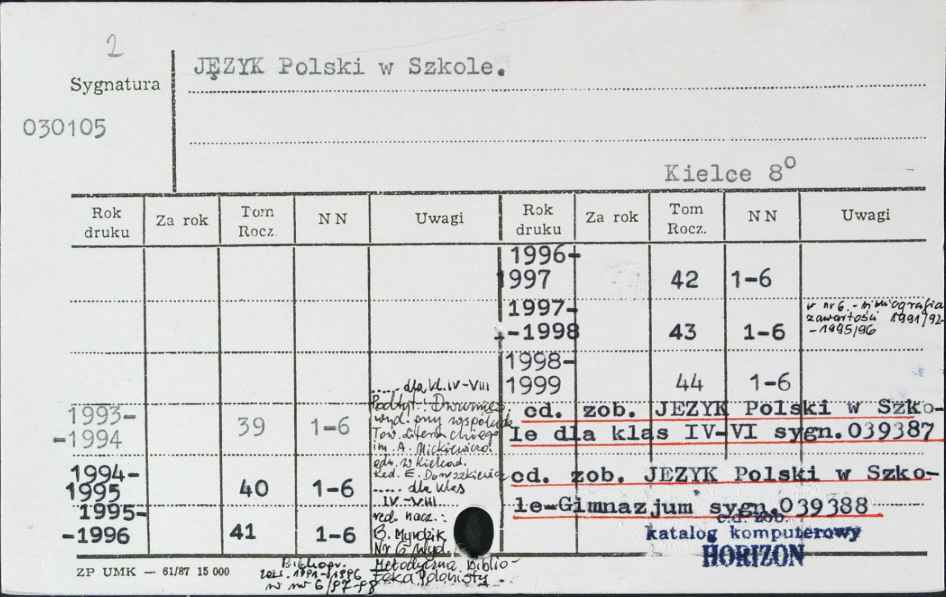 2
JĘZYK Polski w Szkole.
Sygnatura
030105
Kielce 8°
Rok druku Za rok Tom Rocz. NN Uwagi Rok druku Za rok Tom Rocz. NN Uwagi
1996-
1997 42 1-6
1997-
-1998 43 1-6
w nr 6. - bibliografia
zawartości 1991/92-
-1995/96
1998-
1999 44 1-6
1993-
-1994 39 1-6
..... dla kl. IV-VIII
Podtyt.: Dwumies.
wyd. przy współudz.
Tow. Literackiego
im. A. Mickiewicza.
odz. w Kielcach.
Red. E.
1994-
1995 40 1-6
..... dla klas
IV-VIII
1995-
-1996 41 1-6
red. nacz.:
B. Myrdzik
Nr 6 Wyd.
Metodyczna Biblio-
teka Polonisty.
cd. zob. JEZYK Polski w Szko-
le dla klas IV-VI sygn.039387
cd. zob. JEZYK Polski w Szko-
le-Gimnazjum sygn.039388
c.d. zob.
katalog komputerowy
HORIZON
ZP UMK — 61/87 15 000
Bibliogr.
zaw. 1991-1996
w nr 6/97-98